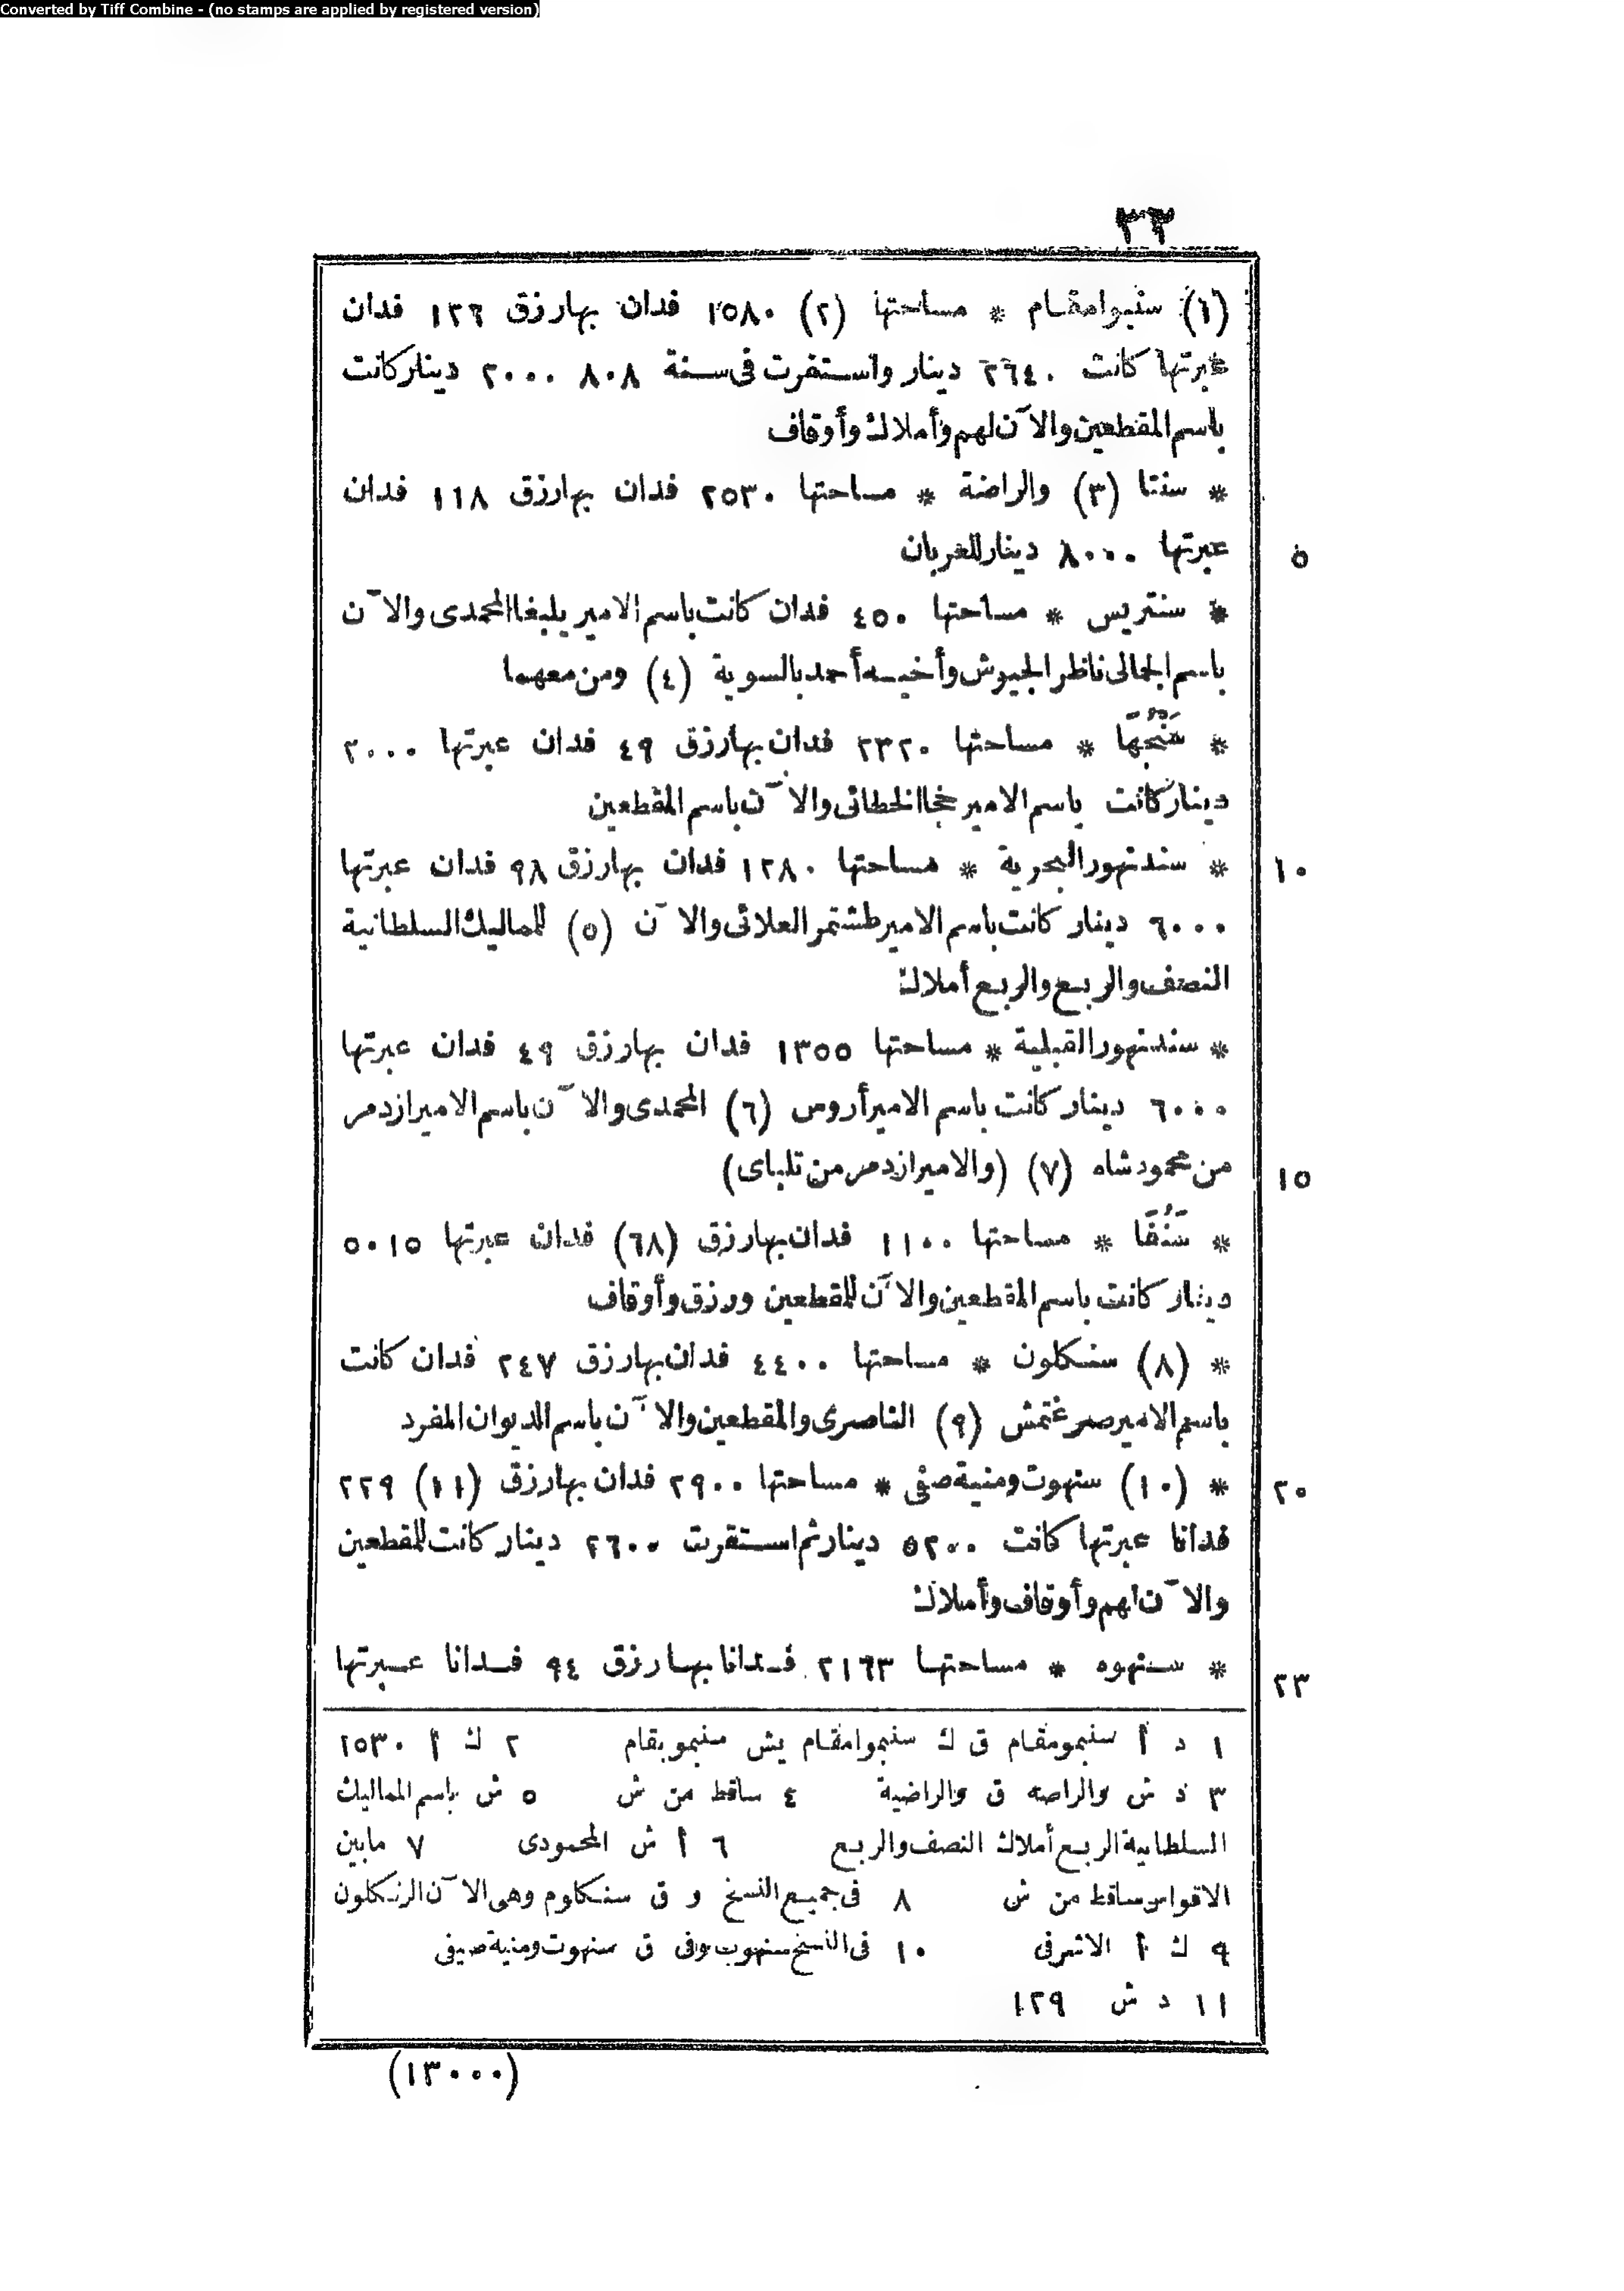 Converted by Tiff Combine - (no stamps are applied by registered version)
٣٣
(١) سنبوامقام * مساحتها (٢) ١٥٨٠ فدان بهارزق ١٢٦ فدان
عبرتها كانت ٢٦٤٠ دينار واستقرت فى سنة ٨٠٨ ٢٠٠٠ ديناركانت
باسم المقطعين والآن لهم وأملاك وأوقاف
* سنتا (٣) والراضة * مساحتها ٢٥٣٠ فدان بهارزق ١١٨ فدان
عبرتها ٨٠٠٠ دينار للعربان
٥
* سنتريس * مساحتها ٤٥٠ فدان كانت باسم الامير يلبغا المحمدى والآن
باسم الجمالى ناظر الجيوش وأخيه أحمد بالسوية (٤) ومن معهما
* سَنْجُهَا * مساحتها ٢٣٢٠ فدان بهارزق ٤٩ فدان عبرتها ٢٠٠٠
ديناركانت باسم الامير خجا الخطائى والآن باسم المقطعين
* سندنهور البحرية * مساحتها ١٢٨٠ فدان بهارزق ٩٨ فدان عبرتها
١٠
٦٠٠٠ دينار كانت باسم الامير طشتمر العلائى والآن (٥) للماليك السلطانية
النصف والربع والربع أملاك
* سندنهور القبلية * مساحتها ١٣٥٥ فدان بهارزق ٤٩ فدان عبرتها
٦٠٠٠ دينار كانت باسم الامير أروس (٦) المحمدى والآن باسم الامير ازدمر
من محمود شاه (٧) (والامير ازدمر من تلباى)
١٥
* سَنُفَا * مساحتها ١١٠٠ فدان بهارزق (٦٨) فدان عبرتها ٥٠١٥
دينار كانت باسم المقطعين والآن للمقطعين ورزق وأوقاف
* (٨) سنكلون * مساحتها ٤٤٠٠ فدان بهارزق ٢٤٧ فدان كانت
باسم الامير صرغتمش (٩) الناصرى والمقطعين والآن باسم الديوان المفرد
* (١٠) سنهوت ومنية صفى * مساحتها ٢٩٠٠ فدان بهارزق (١١) ٢٢٩
٢٠
فدانا عبرتها كانت ٥٢٠٠ دينار ثم استقرت ٢٦٠٠ دينار كانت للمقطعين
والآن لهم وأوقاف وأملاك
* سنهوه * مساحتها ٢١٦٣ فدانا بهارزق ٩٤ فدانا عبرتها
٢٣
١ د أ سنبومقام ق ك سنبوامقام يش سنبوبقام ٢ ك أ ١٥٣٠
٣ د ش والراصه ق والراضية ٤ ساقط من ش ٥ ش باسم المماليك
السلطانية الربع أملاك النصف والربع ٦ أ ش المحمودى ٧ مابين
الاقواس ساقط من ش ٨ فى جميع النسخ و ق سنكلوم وهى الآن الزنكلون
٩ ك أ الاشرفى ١٠ فى النسخ سنهوب وفى ق سنهوت ومنية صيفى
١١ د ش ١٢٩
(١٣٠٠٠)